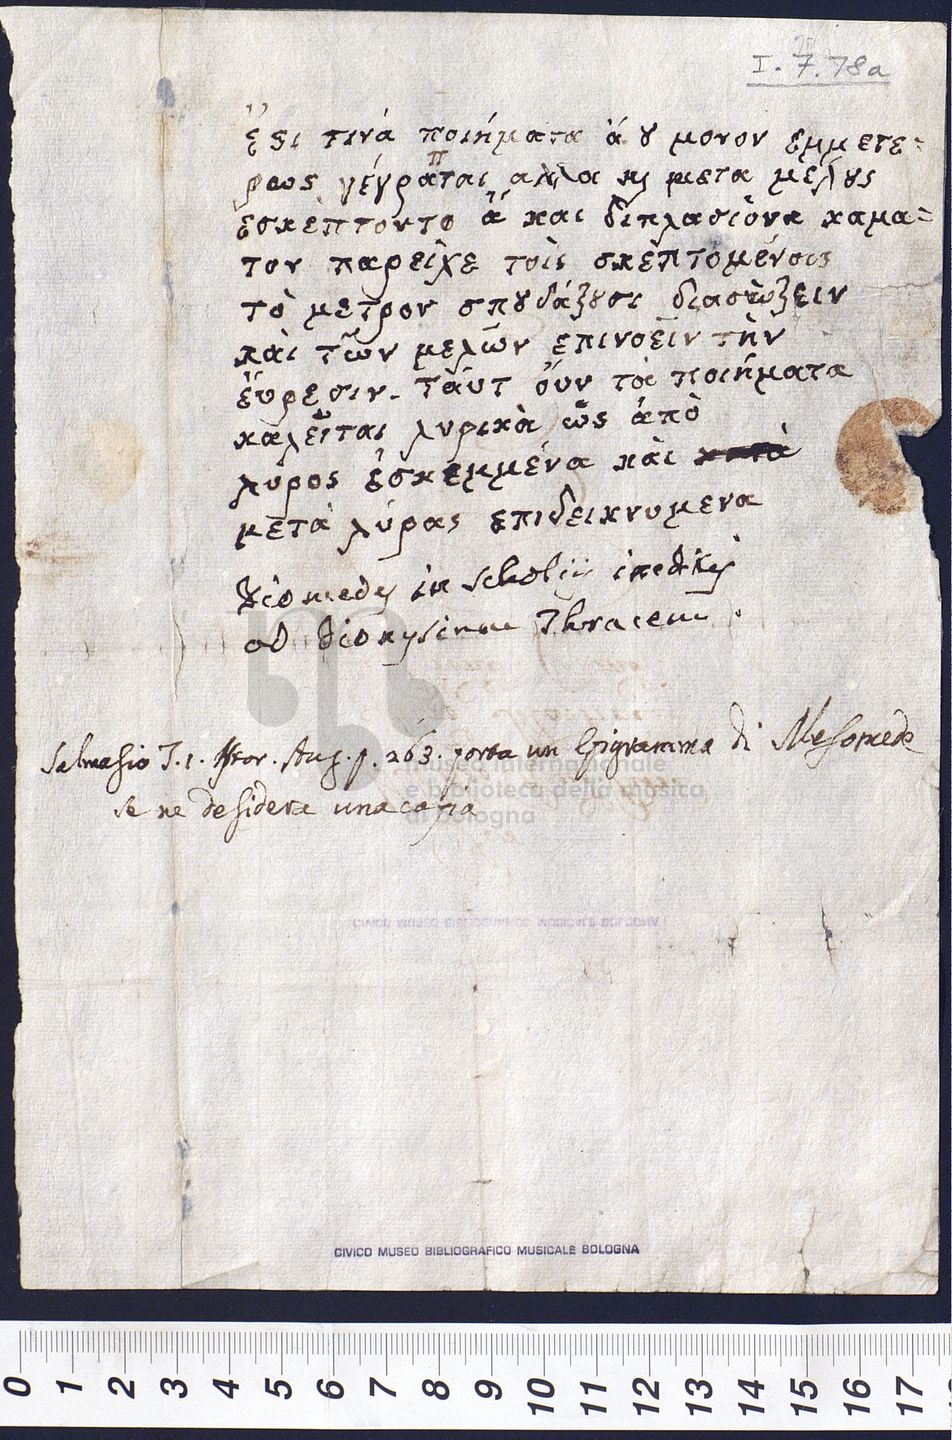 I. 7. 78a
ἔϛι τινά ποιήματα ἁ ȣ μονον εμμετε=
ρως γέγραπται αλλα κ μετα μέλȣς
ἐσκέπτοντο ἃ και διπλασιόνα καμα=
τον παρεῖχε τοῖς σκεπτομένοις
τὸ μετρον σπȣδάζȣσι διασώζειν
καὶ τῶν μελῶν ἐπινοεῖν τὴν
ἕυρεσιν. Ταῦτ ȣν τὰ ποιήματα
καλεῖται λυρικὰ ὡς ἀπὸ
λύρος ἐσκεμμένα καὶ
μετὰ λύρας επιδεικνυμενα
Diomedes in Scholijs ineditis
ad Dionysium Thracem.
Salmasio T. 1. Hstor. Aug. p. 263. porta un Epigramma di Mesomede
se ne desidera una copia
museo internazionale
e biblioteca della musica
di bologna
CIVICO MUSEO BIBLIOGRAFICO MUSICALE BOLOGNA
0 1 2 3 4 5 6 7 8 9 10 11 12 13 14 15 16 17